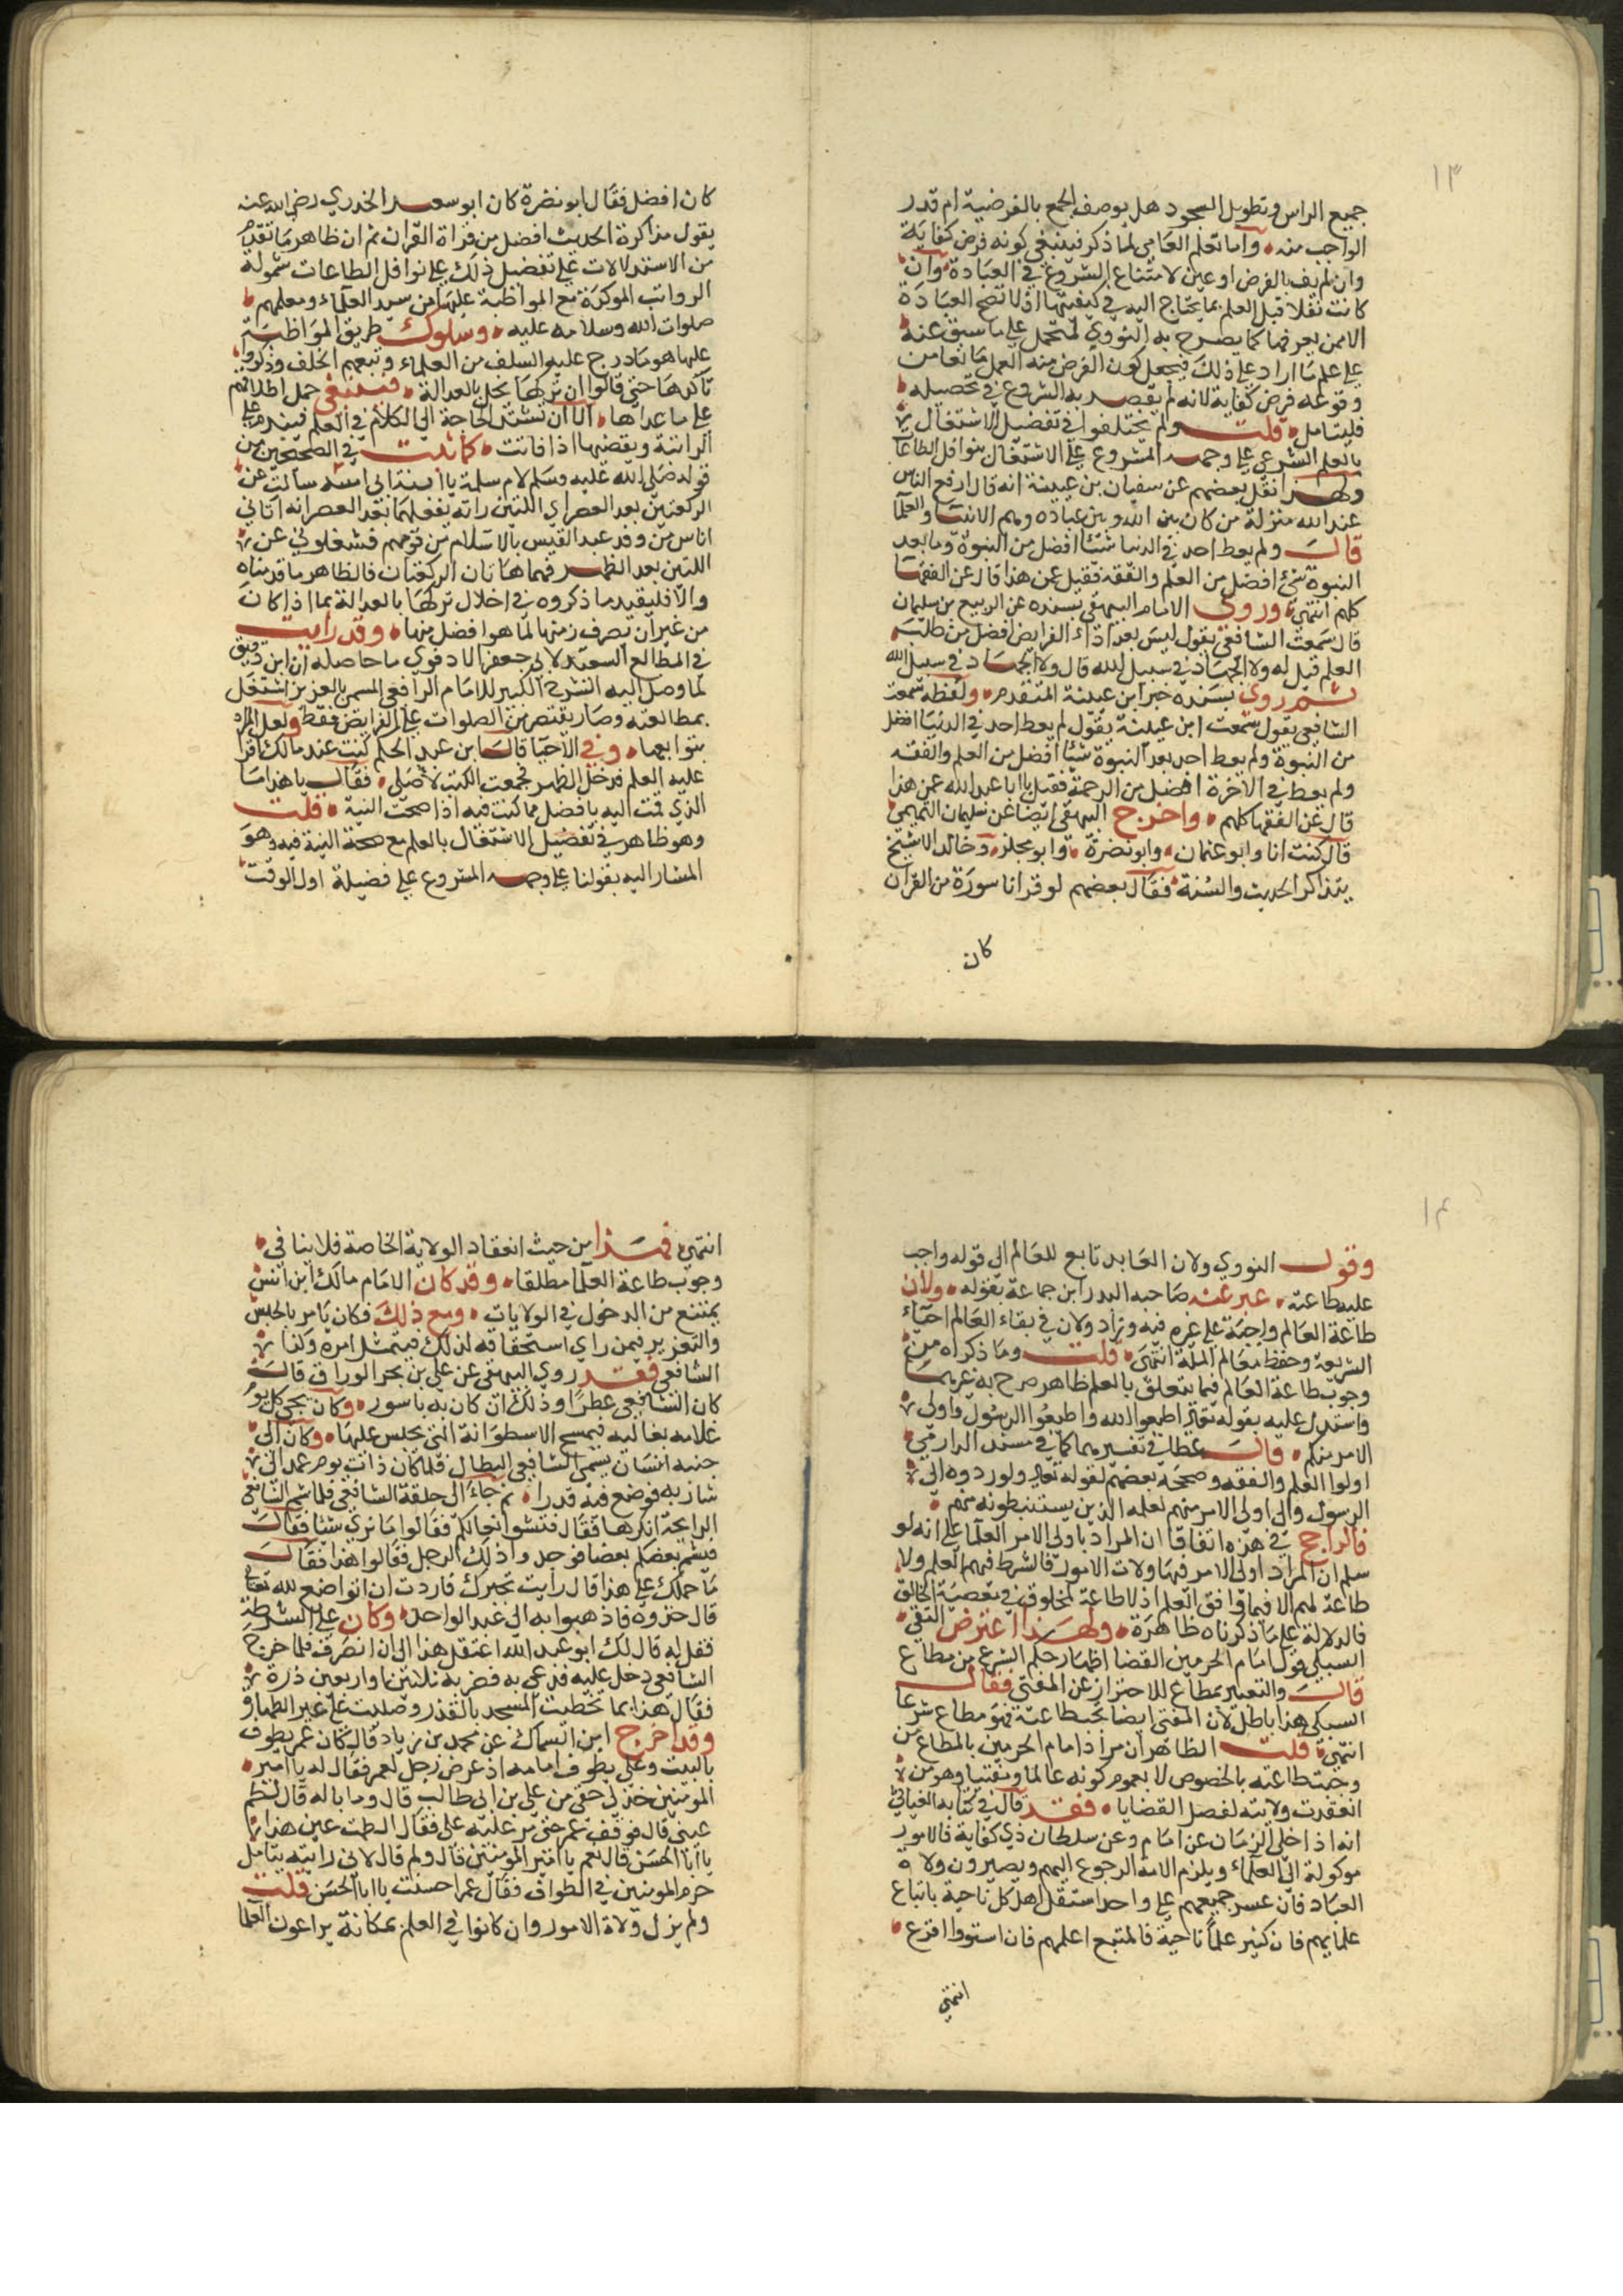 ١٣
جميع الراس وتطويل السجود هل يوصف الجمع بالفرضية ام قدر
الواجب منه واما تعلم العامي لما ذكر فينبغي كونه فرض كفاية
وان لم يف بالفرض او عين لامتناع الشروع في العبادة وان
كانت نفلا قبل العلم بما يحتاج اليه في كيفيتها اذ لا تصح العبادة
الا ممن يعرفها كما يصرح به النووي لتحمل على ما سبق عنه
على علم ما اراد على ذلك فيجعل كون الفرض منه العمل مانعا من
وقوعه فرض كفاية لانه لم يقصد به الشروع في تحصيله
فليتامل قلت ولم يختلفوا في تفضيل الاشتغال
بالعلم الشرعي على وجهه المشروع على الاشتغال بنوافل الطاعات
ولهذا نقل بعضهم عن سفيان بن عيينة انه قال ارفع الناس
عند الله منزلة من كان بين الله وبين عباده وهم الانبيا والعلما
قال ولم يعط احد في الدنيا شيئا افضل من النبوة وما بعد
النبوة شيء افضل من العلم والفقه فقيل عن هذا قال عن الفقها
كلهم انتهى وروى الامام البيهقي بسنده عن الربيع بن سليمان
قال سمعت الشافعي يقول ليس بعد اداء الفرايض افضل من طلب
العلم قيل له ولا الجهاد في سبيل الله قال ولا الجهاد في سبيل الله
ثم روى بسنده خبر ابن عيينة المتقدم ولفظه سمعت
الشافعي يقول سمعت ابن عيينة يقول لم يعط احد في الدنيا افضل
من النبوة ولم يعط احد بعد النبوة شيئا افضل من العلم والفقه
ولم يعط في الاخرة افضل من الرحمة فقيل يا ابا عبد الله عمن هذا
قال عن الفقها كلهم واخرج البيهقي ايضا عن سليمان التيمي
قال كنت انا وابو عثمان وابو نضرة وابو مجلز وخالد الاشج
يتذاكر الحديث والسنة فقال بعضهم لو قرانا سورة من القران
كان
كان افضل فقال ابو نضرة كان ابو سعيد الخدري رضي الله عنه
يقول مذاكرة الحديث افضل من قراة القران ثم ان ظاهر ما تقدم
من الاستدلالات على تفضيل ذلك على نوافل الطاعات شموله
الرواتب الموكدة مع المواظبة عليها من سيد العلماء ومعلمهم
صلوات الله وسلامه عليه وسلوك طريق المواظبة
عليها هو ما درج عليه السلف من العلماء وتبعهم الخلف وذكروا
تاكدها حتى قالوا ان تركها يخل بالعدالة فينبغي حمل اطلاقهم
على ما عداها الا ان تشتد الحاجة الى الكلام في العلم فيقدم على
الراتبة ويقضيها اذا فاتت كما ثبت في الصحيحين من
قوله صلى الله عليه وسلم لام سلمة يا ابنة ابي امية سالت عن
الركعتين بعد العصر اي اللتين راته يفعلهما بعد العصر انه اتاني
اناس من وفد عبد القيس بالاسلام من قومهم فشغلوني عن
اللتين بعد الظهر فهما هاتان الركعتان فالظاهر ما قدمناه
والا فليقيد ما ذكروه في اخلال تركها بالعدالة بما اذا كان
من غير ان يصرف زمنها لما هو افضل منها وقد رايت
في المطالع السعيد لابي جعفر الادفوي ما حاصله ان ابن دقيق
لما وصل اليه الشرح الكبير للامام الرافعي المسمى بالعزيز اشتغل
بمطالعته وصار يقتصر من الصلوات على الفرايض فقط ولعل المراد
بتوابعها وفي الاحيا قال ابن عبد الحكم كنت عند مالك اقرا
عليه العلم فدخل الظهر فجمعت الكتب لاصلي فقال يا هذا ما
الذي قمت اليه بافضل مما كنت فيه اذا صحت النية قلت
وهو ظاهر في تفضيل الاشتغال بالعلم مع صحة النية فيه وهو
المشار اليه بقولنا على وجهه المشروع على فضيلة اول الوقت
١٤
وقول النووي ولان العابد تابع للعالم الى قوله واجب
عليه طاعته عبر عنه صاحبه البدر ابن جماعة بقوله ولان
طاعة العالم واجبة على غيره فيه وزاد ولان في بقاء العالم احياء
الشريعة وحفظ معالم الملة انتهى قلت وما ذكراه من
وجوب طاعة العالم فيما يتعلق بالعلم ظاهر صرح به غيرهما
واستدل عليه بقوله تعالى اطيعوا الله واطيعوا الرسول واولى
الامر منكم قال عطا في تفسيرهما كما في مسند الدارمي
اولوا العلم والفقه وصححه بعضهم لقوله تعالى ولو ردوه الى
الرسول والى اولى الامر منهم لعلمه الذين يستنبطونه منهم
فالراجح في هذه اتفاقا ان المراد باولى الامر العلما على انه لو
سلم ان المراد اولى الامر فيها ولات الامور فالشرط فيهم العلم ولا
طاعة لهم الا فيما وافق العلم اذ لا طاعة لمخلوق في معصية الخالق
فالدلالة على ما ذكرناه ظاهرة ولهذا اعترض التقي
السبكي قول امام الحرمين القضا اظهار حكم الشرع من مطاع
قال والتعبير بمطاع للاحتراز عن المفتي فقال
السبكي هذا باطل لان المفتي ايضا تجب طاعته فهو مطاع شرعا
انتهى قلت الظاهر ان مراد امام الحرمين بالمطاع من
وجبت طاعته بالخصوص لا بعموم كونه عالما ومفتيا وهو من
انعقدت ولايته لفصل القضايا فقد قال في كتابه الغياثي
انه اذا خلى الزمان عن امام وعن سلطان ذي كفاية فالامور
موكولة الى العلماء ويلزم الامة الرجوع اليهم ويصيرون ولاة
العباد فان عسر جميعهم على واحد استقل اهل كل ناحية باتباع
علمايهم فان كثير علما ناحية فالمتبع اعلمهم فان استووا اقرع
انتهى
انتهى فهذا من حيث انعقاد الولاية الخاصة فلا ينافي
وجوب طاعة العلما مطلقا وقد كان الامام مالك ابن انس
يمتنع من الدخول في الولايات ومع ذلك فكان يامر بالحبس
والتعزير فيمن راي استحقاقه لذلك فيمتثل امره وكذا
الشافعي فقد روى البيهقي عن علي بن بحر الوراق قال
كان الشافعي عطرا وذلك ان كان به باسور وكان يجي كل يوم
غلامه بغالية فيمسح الاسطوانة التي يجلس عليها وكان الى
جنبه انسان يسمى الشافعي البطال فلما كان ذات يوم عمد الى
شاربه فوضع فيه قدرا ثم جاء الى حلقة الشافعي فلما شم الشافعي
الرايحة انكرها فقال فتشوا نعالكم فقالوا ما نرى شيئا فقال
فيشم بعضكم بعضا فوجدوا ذلك الرجل فقالوا هذا فقال
ما حملك على هذا قال رايت تجبرك فاردت ان اتواضع لله تعالى
قال خذوه فاذهبوا به الى عبد الواحد وكان على الشرطة
فقل له قال لك ابو عبد الله اعتقل هذا الى ان انصرف فلما خرج
الشافعي دخل عليه فدعي به فضربه ثلاثين او اربعين درة
فقال هذا بما تخطيت المسجد بالقذر وصليت على غير الطهارة
وقد اخرج ابن السماك عن محمد بن زياد قال كان عمر يطوف
بالبيت وعلي يطوف امامه اذ عرض رجل لعمر فقال له يا امير
المومنين خذ لي حقي من علي بن ابي طالب قال وما باله قال لطم
عيني قال فوقف عمر حتى مر عليه علي فقال الطمت عين هذا
يا ابا الحسن قال نعم يا امير المومنين قال ولم قال لاني رايته يتامل
حرم المومنين في الطواف فقال عمر احسنت يا ابا الحسن قلت
ولم يزل ولاة الامور وان كانوا في العلم بمكانة يراعون العلما